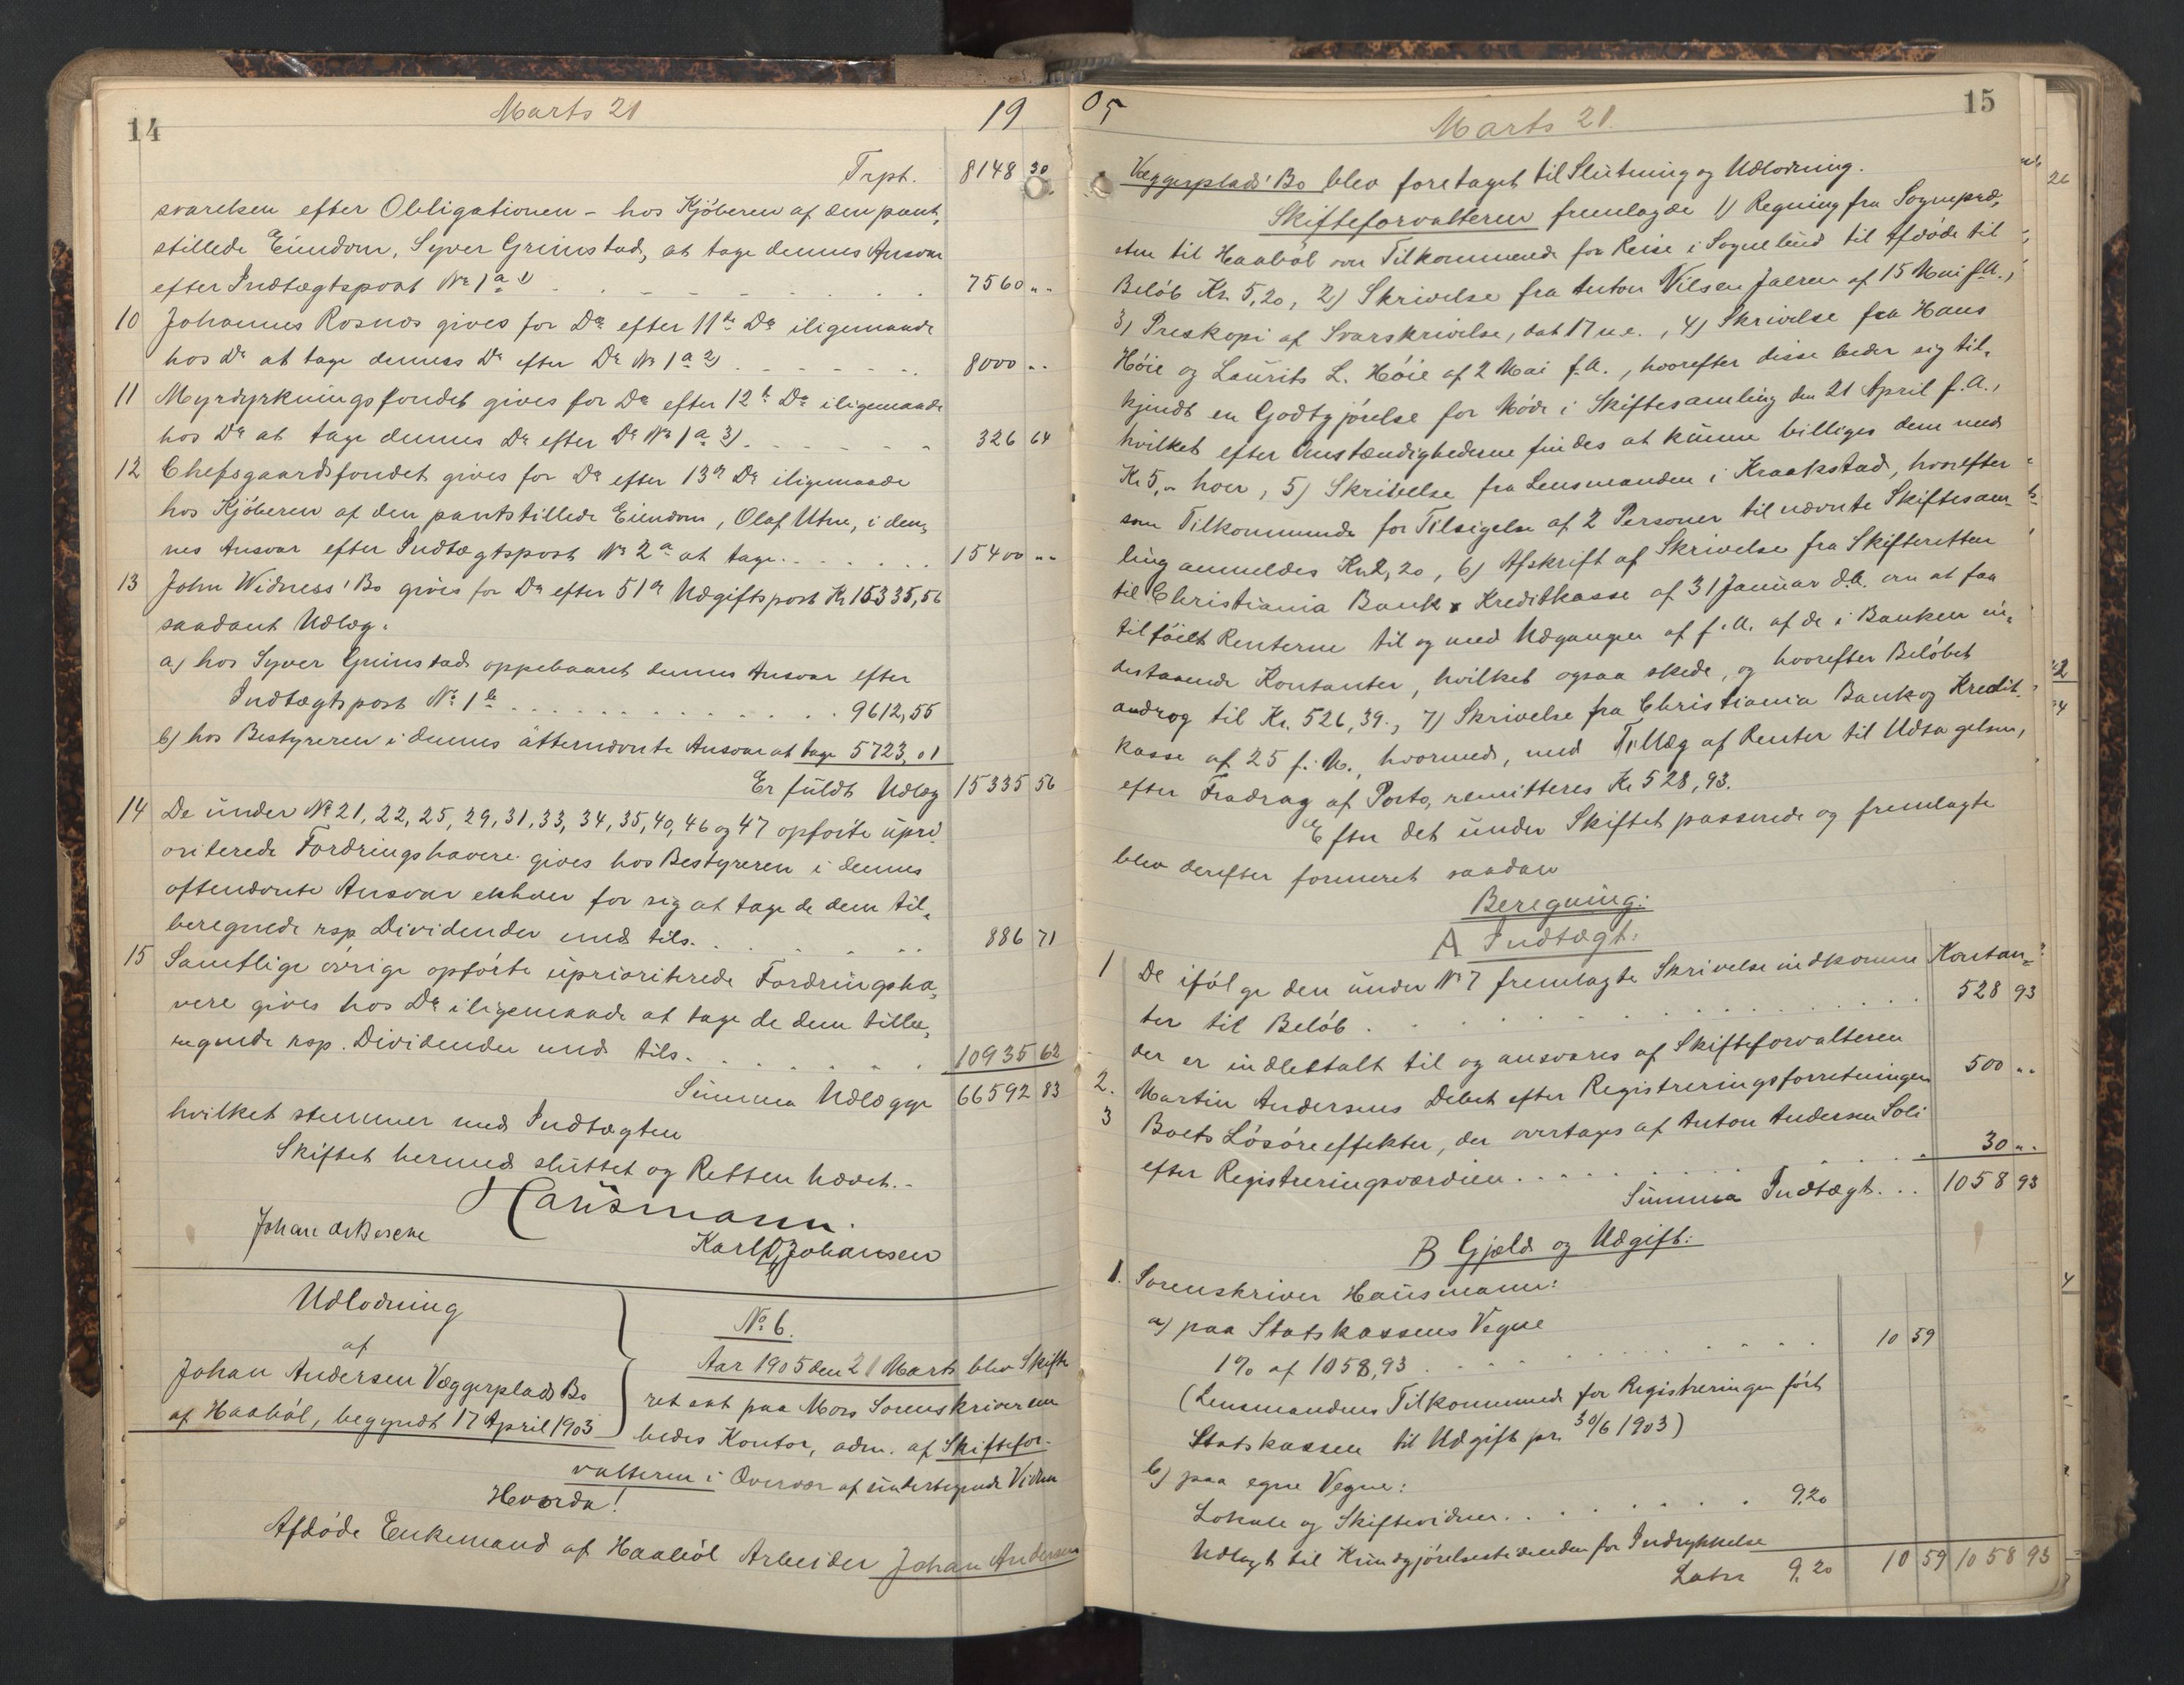 14
Marts 21
19
Trpt. 8148 30
svarelsen efter Obligationen - hos Kjøberen af den pant-
stillede Eiendom, Syver Grimstad, at tage dennes Ansvar
efter Indtægtspost No 1 a 1) 7560 " "
10 Johannes Rosnæs gives for Do efter 11te Do iligemaade
hos Do at tage dennes Do efter Do No 1 a 2) 8000 " "
11 Myrdyrkningsfondet gives for Do efter 12te Do iligemaade
hos Do at tage dennes Do efter Do No 1 a 3) 326 64
12 Chefsgaardsfondet gives for Do efter 13de Do iligemaade
hos Kjøberen af den pantstillede Eiendom, Olaf Utne, i den-
nes Ansvar efter Indtægtspost No 2 a at tage 15400 " "
13 John Widness' Bo gives for Do efter 51de Udgiftspost Kr 15335,56
saadant Udlæg:
a) hos Syver Grimstad oppebaaret dennes Ansvar efter
Indtægtspost No 1 b 9612,55
b) hos Bestyreren i dennes atternævnte Ansvar at tage 5723,01
Er fuldt Udlæg 15335 56
14 De under No 21, 22, 25, 29, 31, 33, 34, 35, 40, 46 og 47 opførte upri-
oriterede Fordringshavere gives hos Bestyreren i dennes
oftenævnte Ansvar enhver for sig at tage de dem til-
beregnede rsp. Dividender med tils. 886 71
15 Samtlige øvrige opførte uprioriterede Fordringsha-
vere gives hos Do iligemaade at tage de dem tilbe-
regnede rsp. Dividender med tils. 10935 62
Summa Udlægge 66592 83
hvilket stemmer med Indtægten
Skiftet hermed sluttet og Retten hævet.-
Hausmann.
Karl Johansen
Udlodning
af
Johan Andersen Væggerplads Bo
af Haabøl, begyndt 17 April 1903
No 6.
Aar 1905 den 21 Marts blev Skifte
ret sat paa Mors Sorenskriverem
bedes Kontor, adm. af Skiftefor-
valteren i Overvær af undertegnede Vidner
Hvorda!
Afdøde Enkemand af Haabøl Arbeider Johan Andersen
05
Marts 21.
15
Væggerplads' Bo blev foretaget til Slutning og Udlodning.
Skifteforvalteren fremlagde 1) Regning fra Sognepræ-
sten til Haabøl om Tilkommende for Reise i Sognebud til Afdøde til
Beløb Kr. 5,20, 2) Skrivelse fra Anton Nilsen Jaeren af 15 Mai f.A.,
3) Preskopi af Svarskrivelse, dat 17 n.e., 4) Skrivelse fra Hans
Høie og Laurits L. Høie af 2 Mai f.A., hvorefter disse beder sig til-
kjendt en Godtgjørelse for Møde i Skiftesamling den 21 April f.A.,
hvilket efter Omstændighederne findes at kunne billiges dem med
Kr 5,- hver, 5) Skrivelse fra Lensmanden i Kraakstad, hvorefter
som Tilkommende for Tilsigelse af 2 Personer til nævnte Skiftesam-
ling anmeldes Kr. 2,20, 6) Afskrift af Skrivelse fra Skifteretten
til Christiania Bank & Kreditkasse af 31 Januar d.A. om at faa
tilføiet Renterne til og med Udgangen af f.A. af de i Banken in-
destaaende Kontanter, hvilket ogsaa skede, og hvorefter Beløbet
androg til Kr. 526,39., 7) Skrivelse fra Christiania Bank og Kredit-
kasse af 25 f.M., hvormed, med Tillæg af Renter til Udtagelsen,
efter Fradrag af Porto, remitteres Kr 528,93.
Efter det under Skiftet passerede og fremlagte
blev derefter formeret saadan
Beregning:
A Indtægt:
1 De ifølge den under No 7 fremlagte Skrivelse indkomne Kontan-
ter til Beløb 528 93
der er indbetalt til og ansvares af Skifteforvalteren
2. Martin Andersens Debet efter Registreringsforretningen 500 " "
3 Boets Løsøreeffekter, der overtages af Anton Andersen Soli
efter Registreringsværdien 30 " "
Summa Indtægt 1058 93
B Gjæld og Udgift:
1. Sorenskriver Hausmann:
a) paa Statskassens Vegne
1% af 1058,93 10 59
(Lensmandens Tilkommende for Registreringen ført
Statskassen til Udgift pr. 30/6 1903)
b) paa egne Vegne:
Lokale og Skiftevidner 9,20
Udlagt til Kundgjørelsestidenden for Indrykkelse
Latus 9,20 10 59 1058 93